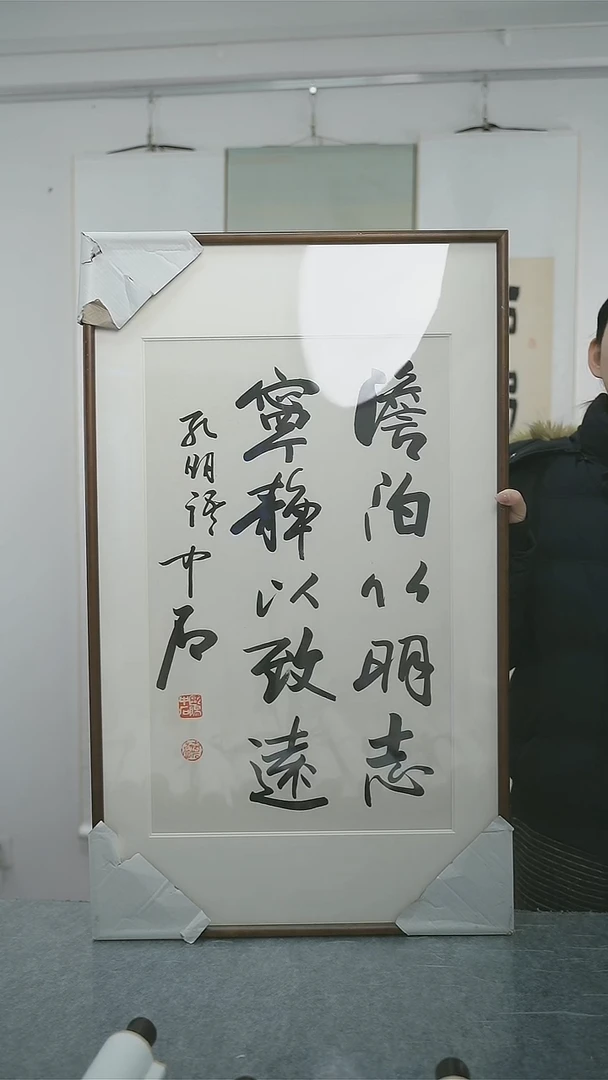 澹泊以明志
寧静以致遠
孔明語中石